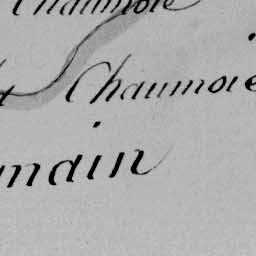 Chaumoie
Chaumoie
main